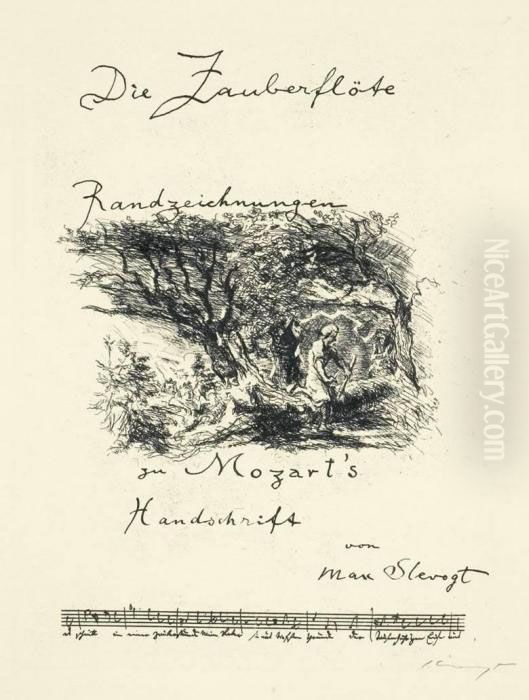 Die Zauberflöte
Randzeichnungen
zu Mozart's
Handschrift
von
Max Slevogt
NiceArtGallery.com